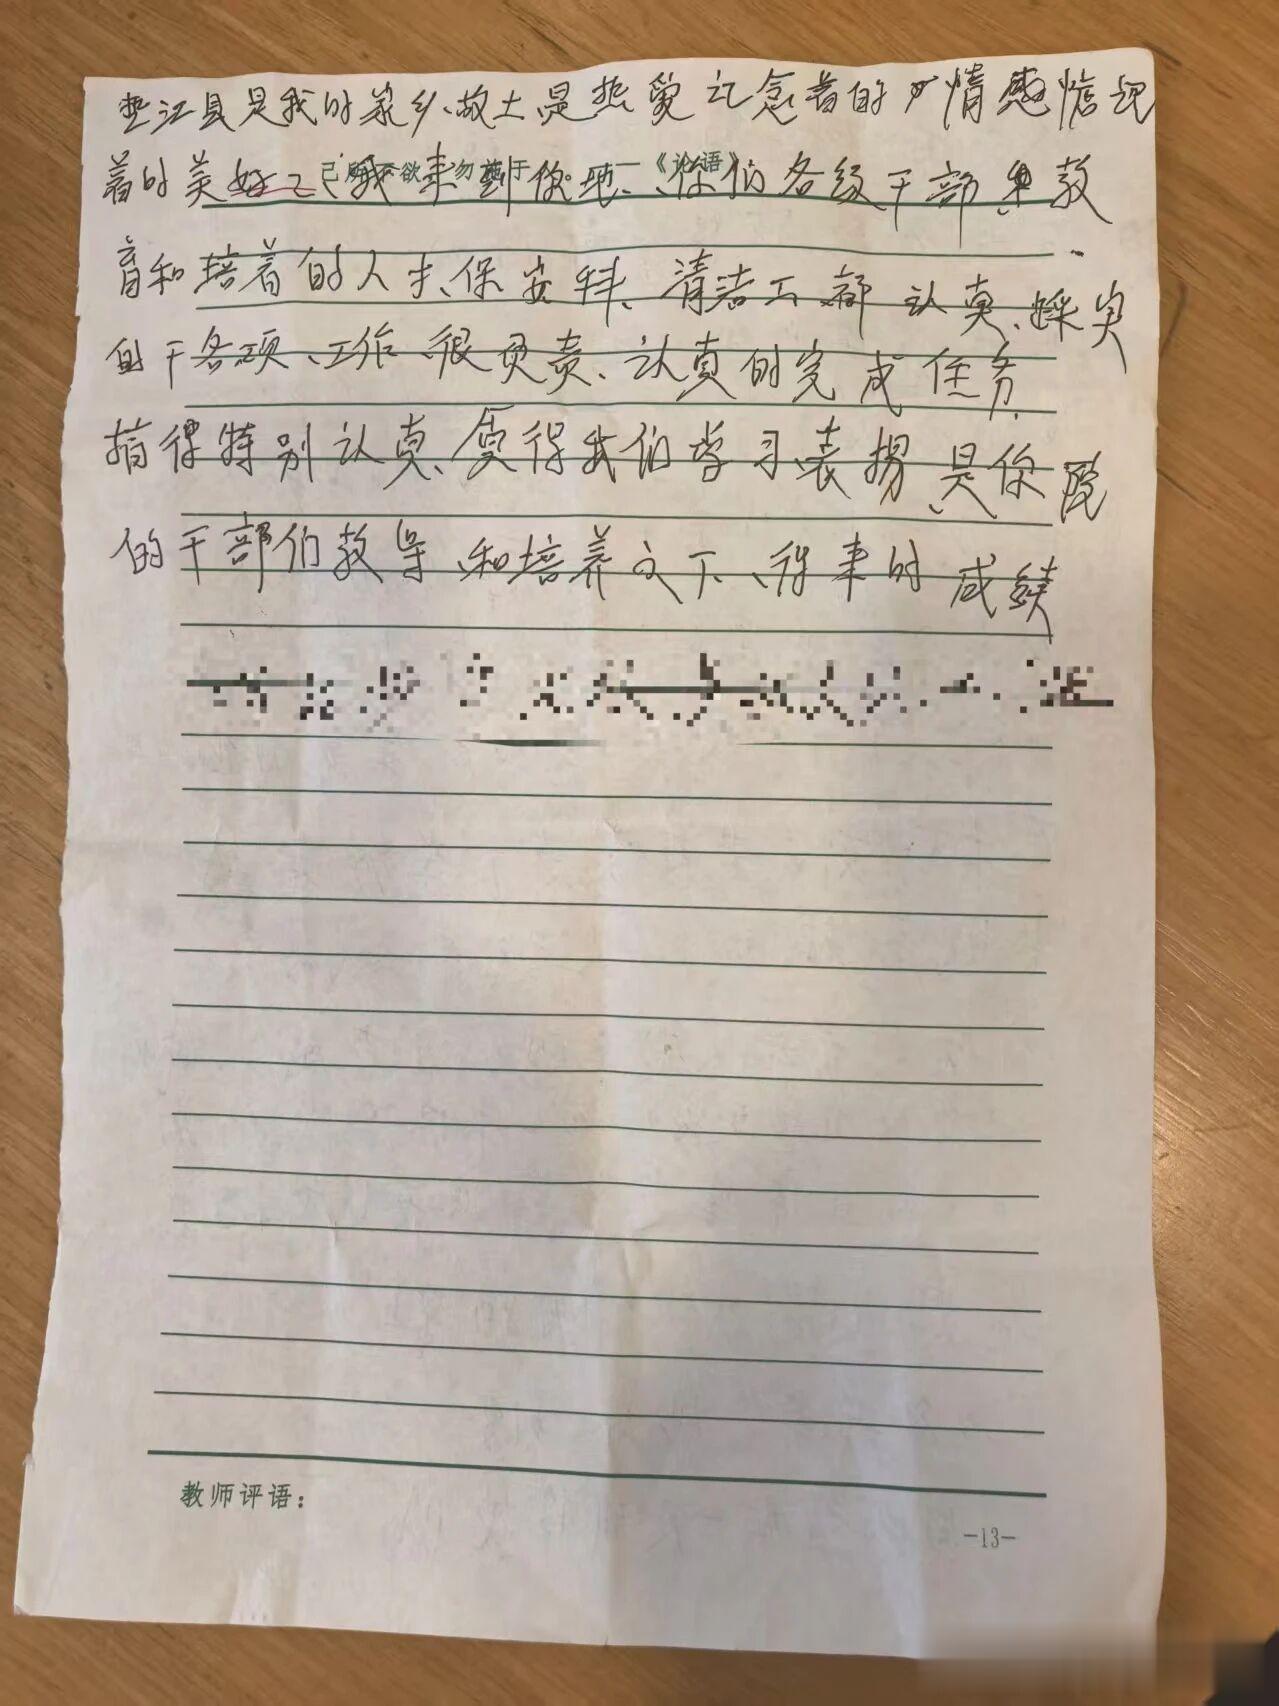 垫江县是我的家乡、故土是热爱记念着的 情感惦记
着的美好 我来到你地、你们各级干部 教
己所不欲勿施于 —《论语》
育和培着的人才、保安科、清洁工都认真、踩实
的干各项、工作、很负责、认真的完成任务
值得特别认真、值得我们学习表扬是你院
的干部们教导、和培养之下、得来的成绩
教师评语：
—13—